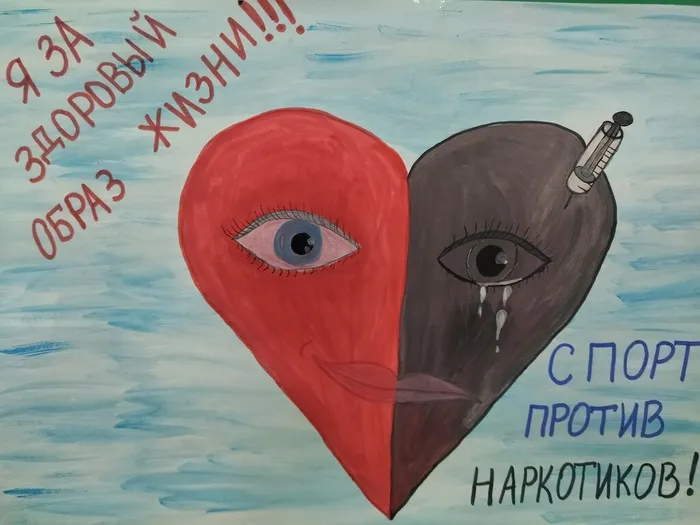 Я ЗА
ЗДОРОВЫЙ
ОБРАЗ ЖИЗНИ!!!
СПОРТ
ПРОТИВ
НАРКОТИКОВ!